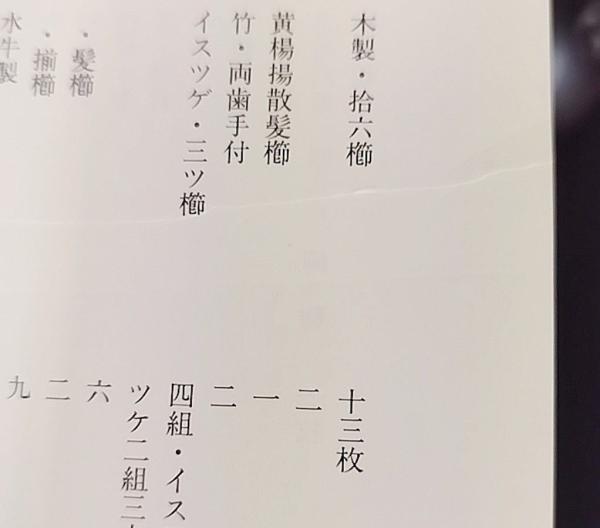 木製・拾六櫛
黄楊揚散髪櫛
竹・両歯手付
イスツゲ・三ツ櫛
・髪櫛
・揃櫛
水牛製
十三枚
二
一
二
四組・イス
ツケ二組三
六
二
九